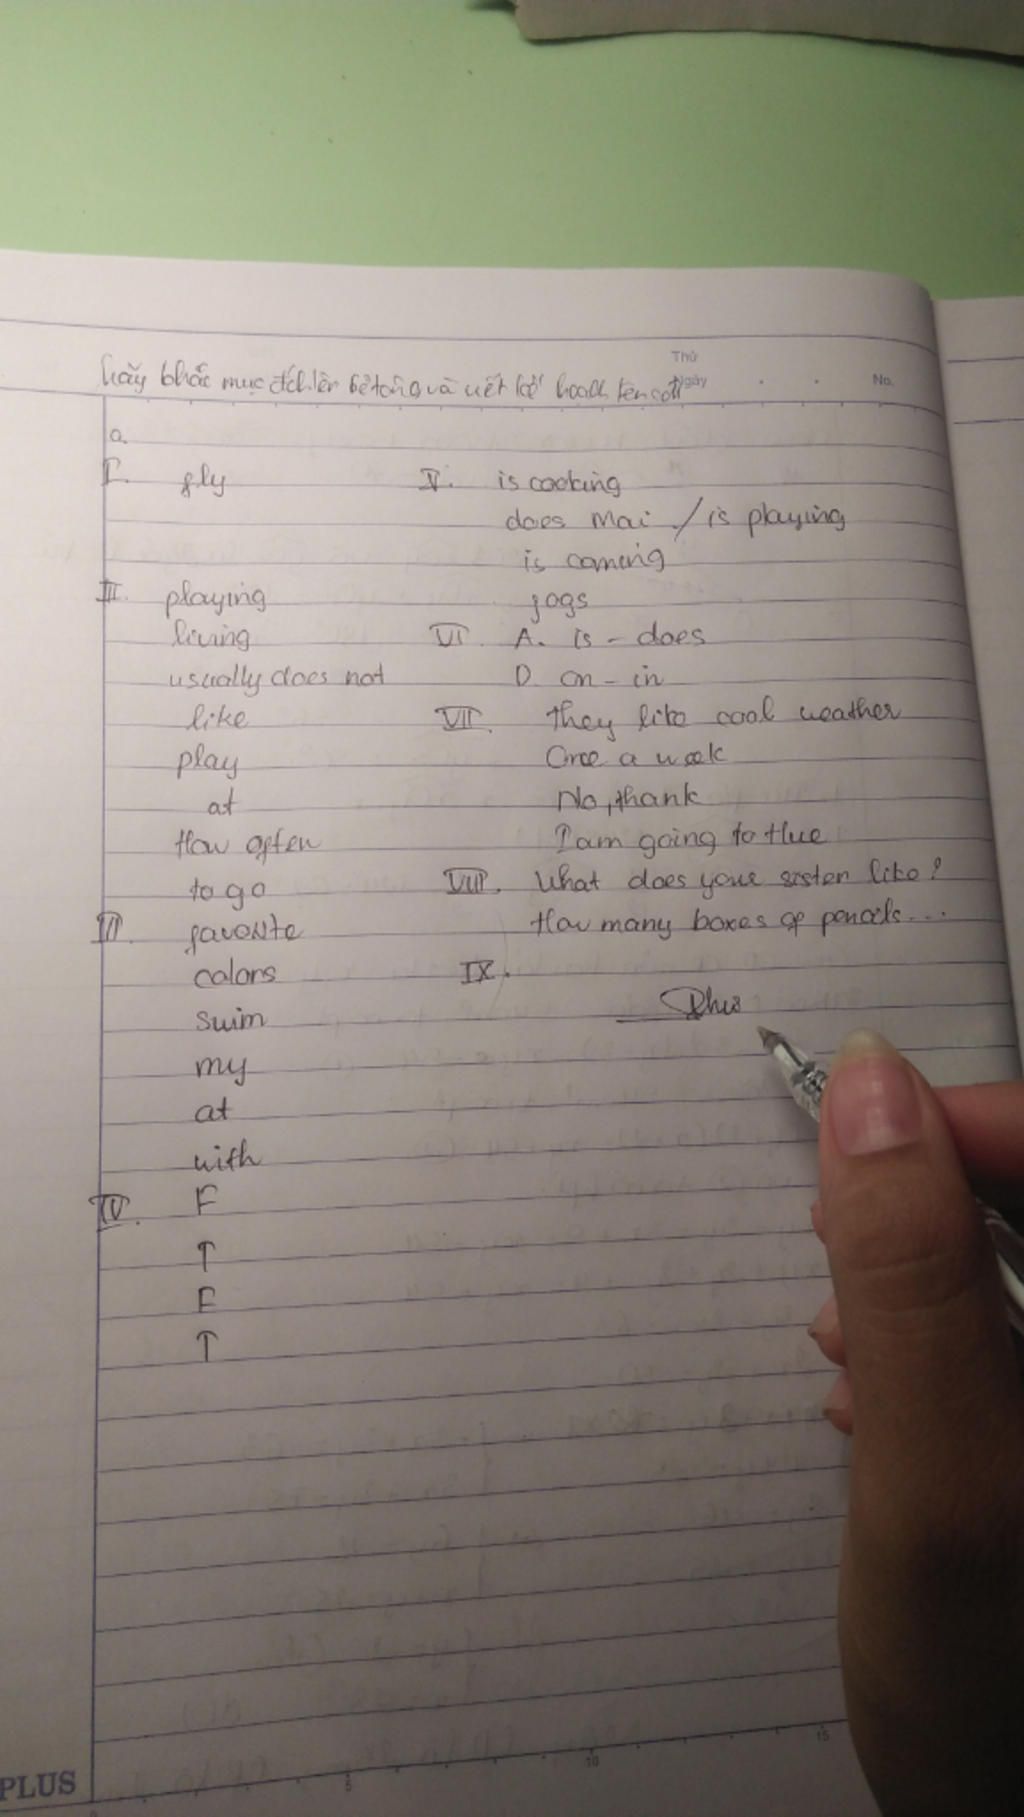 Hãy khắc mục đích lên bê tông và viết kế hoạch lên cát
Thứ
Ngày
No.
a.
I. fly
II. playing
living
usually does not
like
play
at
How often
to go
III. favorite
colors
swim
my
at
with
IV. F
T
F
T
V. is cooking
does Mai / is playing
is coming
jogs
VI. A. is - does
D. on - in
VII. they like cool weather
Once a week
No, thank
I am going to Hue
VIII. What does your sister like?
How many boxes of pencils...
IX.
5
10
15
PLUS